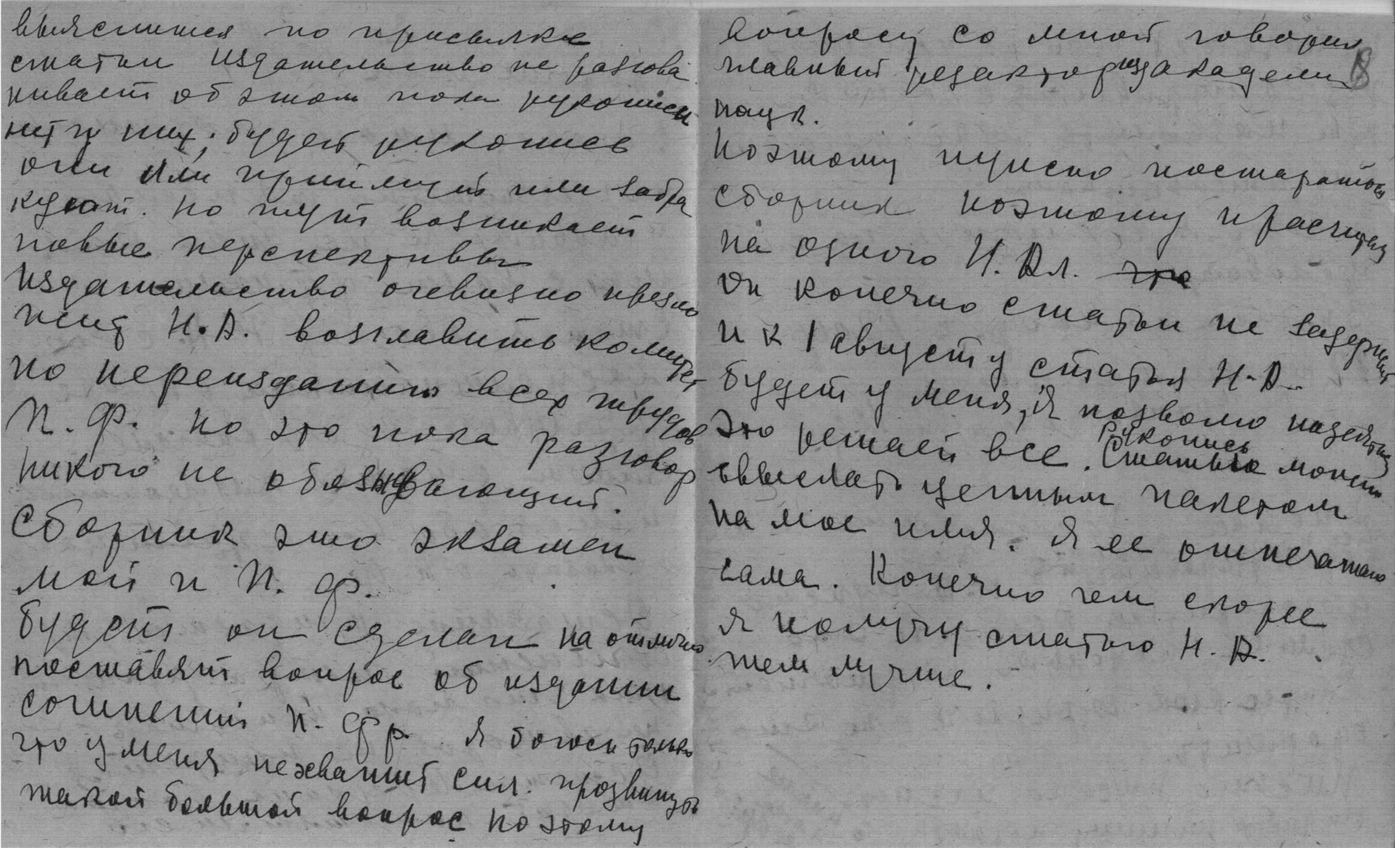 выяснится по присылке
статьи издательство не разгова
ривает об этом пока рукописи
нет у них, будет рукопись
они или примут или забра
куют. Но тут возникает
новые перспективы
издательство очевидно предло
жит Н.А. возглавить комитет
по переизданию всех трудов
П.Ф. но это пока разговор
никого не обязывающий.
Сборник это экзамен
мой и П.Ф.
будет он сделан на отлично
поставят вопрос об издании
сочинений П.Фр. Я боюсь только
что у меня нехватит сил. продвинуть
такой большой вопрос поэтому
вопросу со мной говорил
главный редактор изд академии
наук.
8
Поэтому нужно постараться
сборник поэтому я рассчит
на одного Н.Ал. что
он конечно статьи не задержит
и к 1 августу статья Н.А.
будет у меня, я позволю надеяться
Это решает все. Рукопись
Статью можно
выслать ценным пакетом
на мое имя. Я ее отпечатаю
сама. Конечно чем скорее
я получу статью Н.А.
тем лучше.